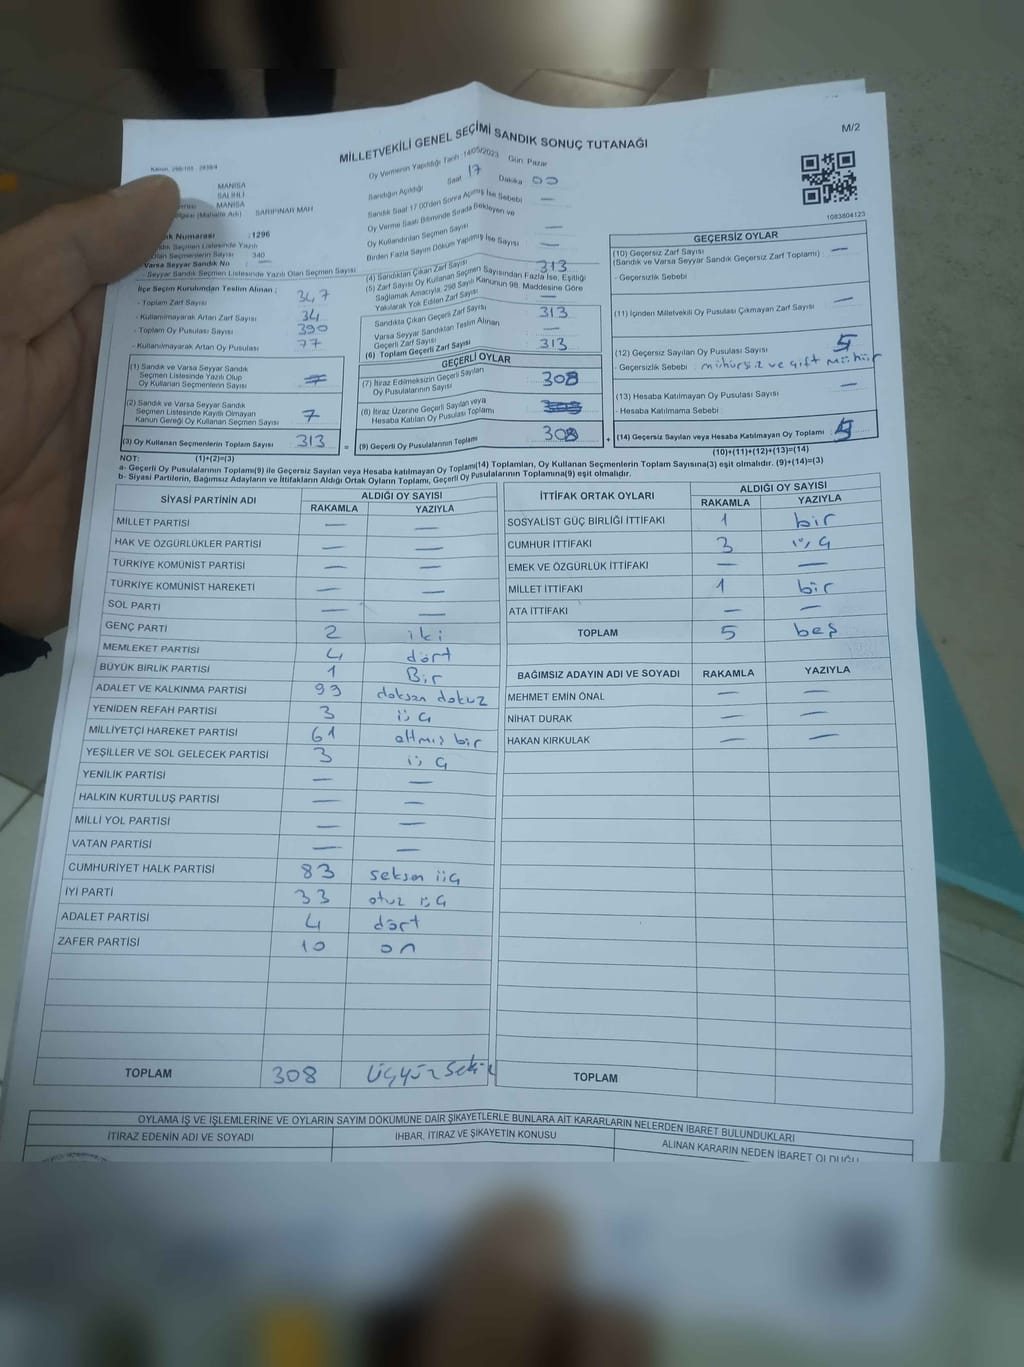 M/2
MİLLETVEKİLİ GENEL SEÇİMİ SANDIK SONUÇ TUTANAĞI
Oy Vermenin Yapıldığı Tarih : 14/05/2023 Gün: Pazar
Sandığın Açıldığı Saat 17 Dakika 00
Sandık Saat 17.00'den Sonra Açılmış İse Sebebi —
Oy Verme Saati Bitiminde Sırada Bekleyen ve
Oy Kullandırılan Seçmen Sayısı —
Birden Fazla Sayım Döküm Yapılmış İse Sayısı —
MANİSA
SALİHLİ
MANİSA
(Mahalle Adı) SARIPINAR MAH
Numarası : 1296
Sandık Seçmen Listesinde Yazılı
Olan Seçmenlerin Sayısı 340
Varsa Seyyar Sandık No : —
Seyyar Sandık Seçmen Listesinde Yazılı Olan Seçmen Sayısı
İlçe Seçim Kurulundan Teslim Alınan ;
- Toplam Zarf Sayısı 347
- Kullanılmayarak Artan Zarf Sayısı 34
- Toplam Oy Pusulası Sayısı 390
- Kullanılmayarak Artan Oy Pusulası 77
(1) Sandık ve Varsa Seyyar Sandık
Seçmen Listesinde Yazılı Olup
Oy Kullanan Seçmenlerin Sayısı
(2) Sandık ve Varsa Seyyar Sandık
Seçmen Listesinde Kayıtlı Olmayan
Kanun Gereği Oy Kullanan Seçmen Sayısı 7
(3) Oy Kullanan Seçmenlerin Toplam Sayısı 313
(4) Sandıktan Çıkan Zarf Sayısı 313
(5) Zarf Sayısı Oy Kullanan Seçmen Sayısından Fazla İse, Eşitliği
Sağlamak Amacıyla, 298 Sayılı Kanunun 98. Maddesine Göre
Yakılarak Yok Edilen Zarf Sayısı —
Sandıkta Çıkan Geçerli Zarf Sayısı 313
Varsa Seyyar Sandıktan Teslim Alınan
Geçerli Zarf Sayısı —
(6) Toplam Geçerli Zarf Sayısı 313
GEÇERLİ OYLAR
(7) İtiraz Edilmeksizin Geçerli Sayılan
Oy Pusulalarının Sayısı 308
(8) İtiraz Üzerine Geçerli Sayılan veya
Hesaba Katılan Oy Pusulası Toplamı
= (9) Geçerli Oy Pusulalarının Toplamı 308
1083804123
GEÇERSİZ OYLAR
(10) Geçersiz Zarf Sayısı —
(Sandık ve Varsa Seyyar Sandık Geçersiz Zarf Toplamı) :
- Geçersizlik Sebebi :
(11) İçinden Milletvekili Oy Pusulası Çıkmayan Zarf Sayısı —
(12) Geçersiz Sayılan Oy Pusulası Sayısı 5
- Geçersizlik Sebebi : mühürsüz ve çift mühür
(13) Hesaba Katılmayan Oy Pusulası Sayısı —
- Hesaba Katılmama Sebebi :
+ (14) Geçersiz Sayılan veya Hesaba Katılmayan Oy Toplamı 5
(10)+(11)+(12)+(13)=(14)
NOT: (1)+(2)=(3)
a- Geçerli Oy Pusulalarının Toplamı(9) ile Geçersiz Sayılan veya Hesaba katılmayan Oy Toplamı(14) Toplamları, Oy Kullanan Seçmenlerin Toplam Sayısına(3) eşit olmalıdır. (9)+(14)=(3)
b- Siyasi Partilerin, Bağımsız Adayların ve İttifakların Aldığı Ortak Oyların Toplamı, Geçerli Oy Pusulalarının Toplamına(9) eşit olmalıdır.
SİYASİ PARTİNİN ADI ALDIĞI OY SAYISI
RAKAMLA YAZIYLA
MİLLET PARTİSİ — —
HAK VE ÖZGÜRLÜKLER PARTİSİ — —
TÜRKİYE KOMÜNİST PARTİSİ — —
TÜRKİYE KOMÜNİST HAREKETİ — —
SOL PARTİ — —
GENÇ PARTİ 2 iki
MEMLEKET PARTİSİ 4 dört
BÜYÜK BİRLİK PARTİSİ 1 Bir
ADALET VE KALKINMA PARTİSİ 99 doksan dokuz
YENİDEN REFAH PARTİSİ 3 üç
MİLLİYETÇİ HAREKET PARTİSİ 61 altmış bir
YEŞİLLER VE SOL GELECEK PARTİSİ 3 üç
YENİLİK PARTİSİ — —
HALKIN KURTULUŞ PARTİSİ — —
MİLLİ YOL PARTİSİ — —
VATAN PARTİSİ — —
CUMHURİYET HALK PARTİSİ 83 seksen üç
İYİ PARTİ 33 otuz üç
ADALET PARTİSİ 4 dört
ZAFER PARTİSİ 10 on
TOPLAM 308 üçyüz seki
İTTİFAK ORTAK OYLARI ALDIĞI OY SAYISI
RAKAMLA YAZIYLA
SOSYALİST GÜÇ BİRLİĞİ İTTİFAKI 1 bir
CUMHUR İTTİFAKI 3 üç
EMEK VE ÖZGÜRLÜK İTTİFAKI — —
MİLLET İTTİFAKI 1 bir
ATA İTTİFAKI — —
TOPLAM 5 beş
BAĞIMSIZ ADAYIN ADI VE SOYADI RAKAMLA YAZIYLA
MEHMET EMİN ÖNAL — —
NİHAT DURAK — —
HAKAN KIRKULAK — —
TOPLAM
OYLAMA İŞ VE İŞLEMLERİNE VE OYLARIN SAYIM DÖKÜMÜNE DAİR ŞİKAYETLERLE BUNLARA AİT KARARLARIN NELERDEN İBARET BULUNDUKLARI
İTİRAZ EDENİN ADI VE SOYADI İHBAR, İTİRAZ VE ŞİKAYETİN KONUSU ALINAN KARARIN NEDEN İBARET OLDUĞU